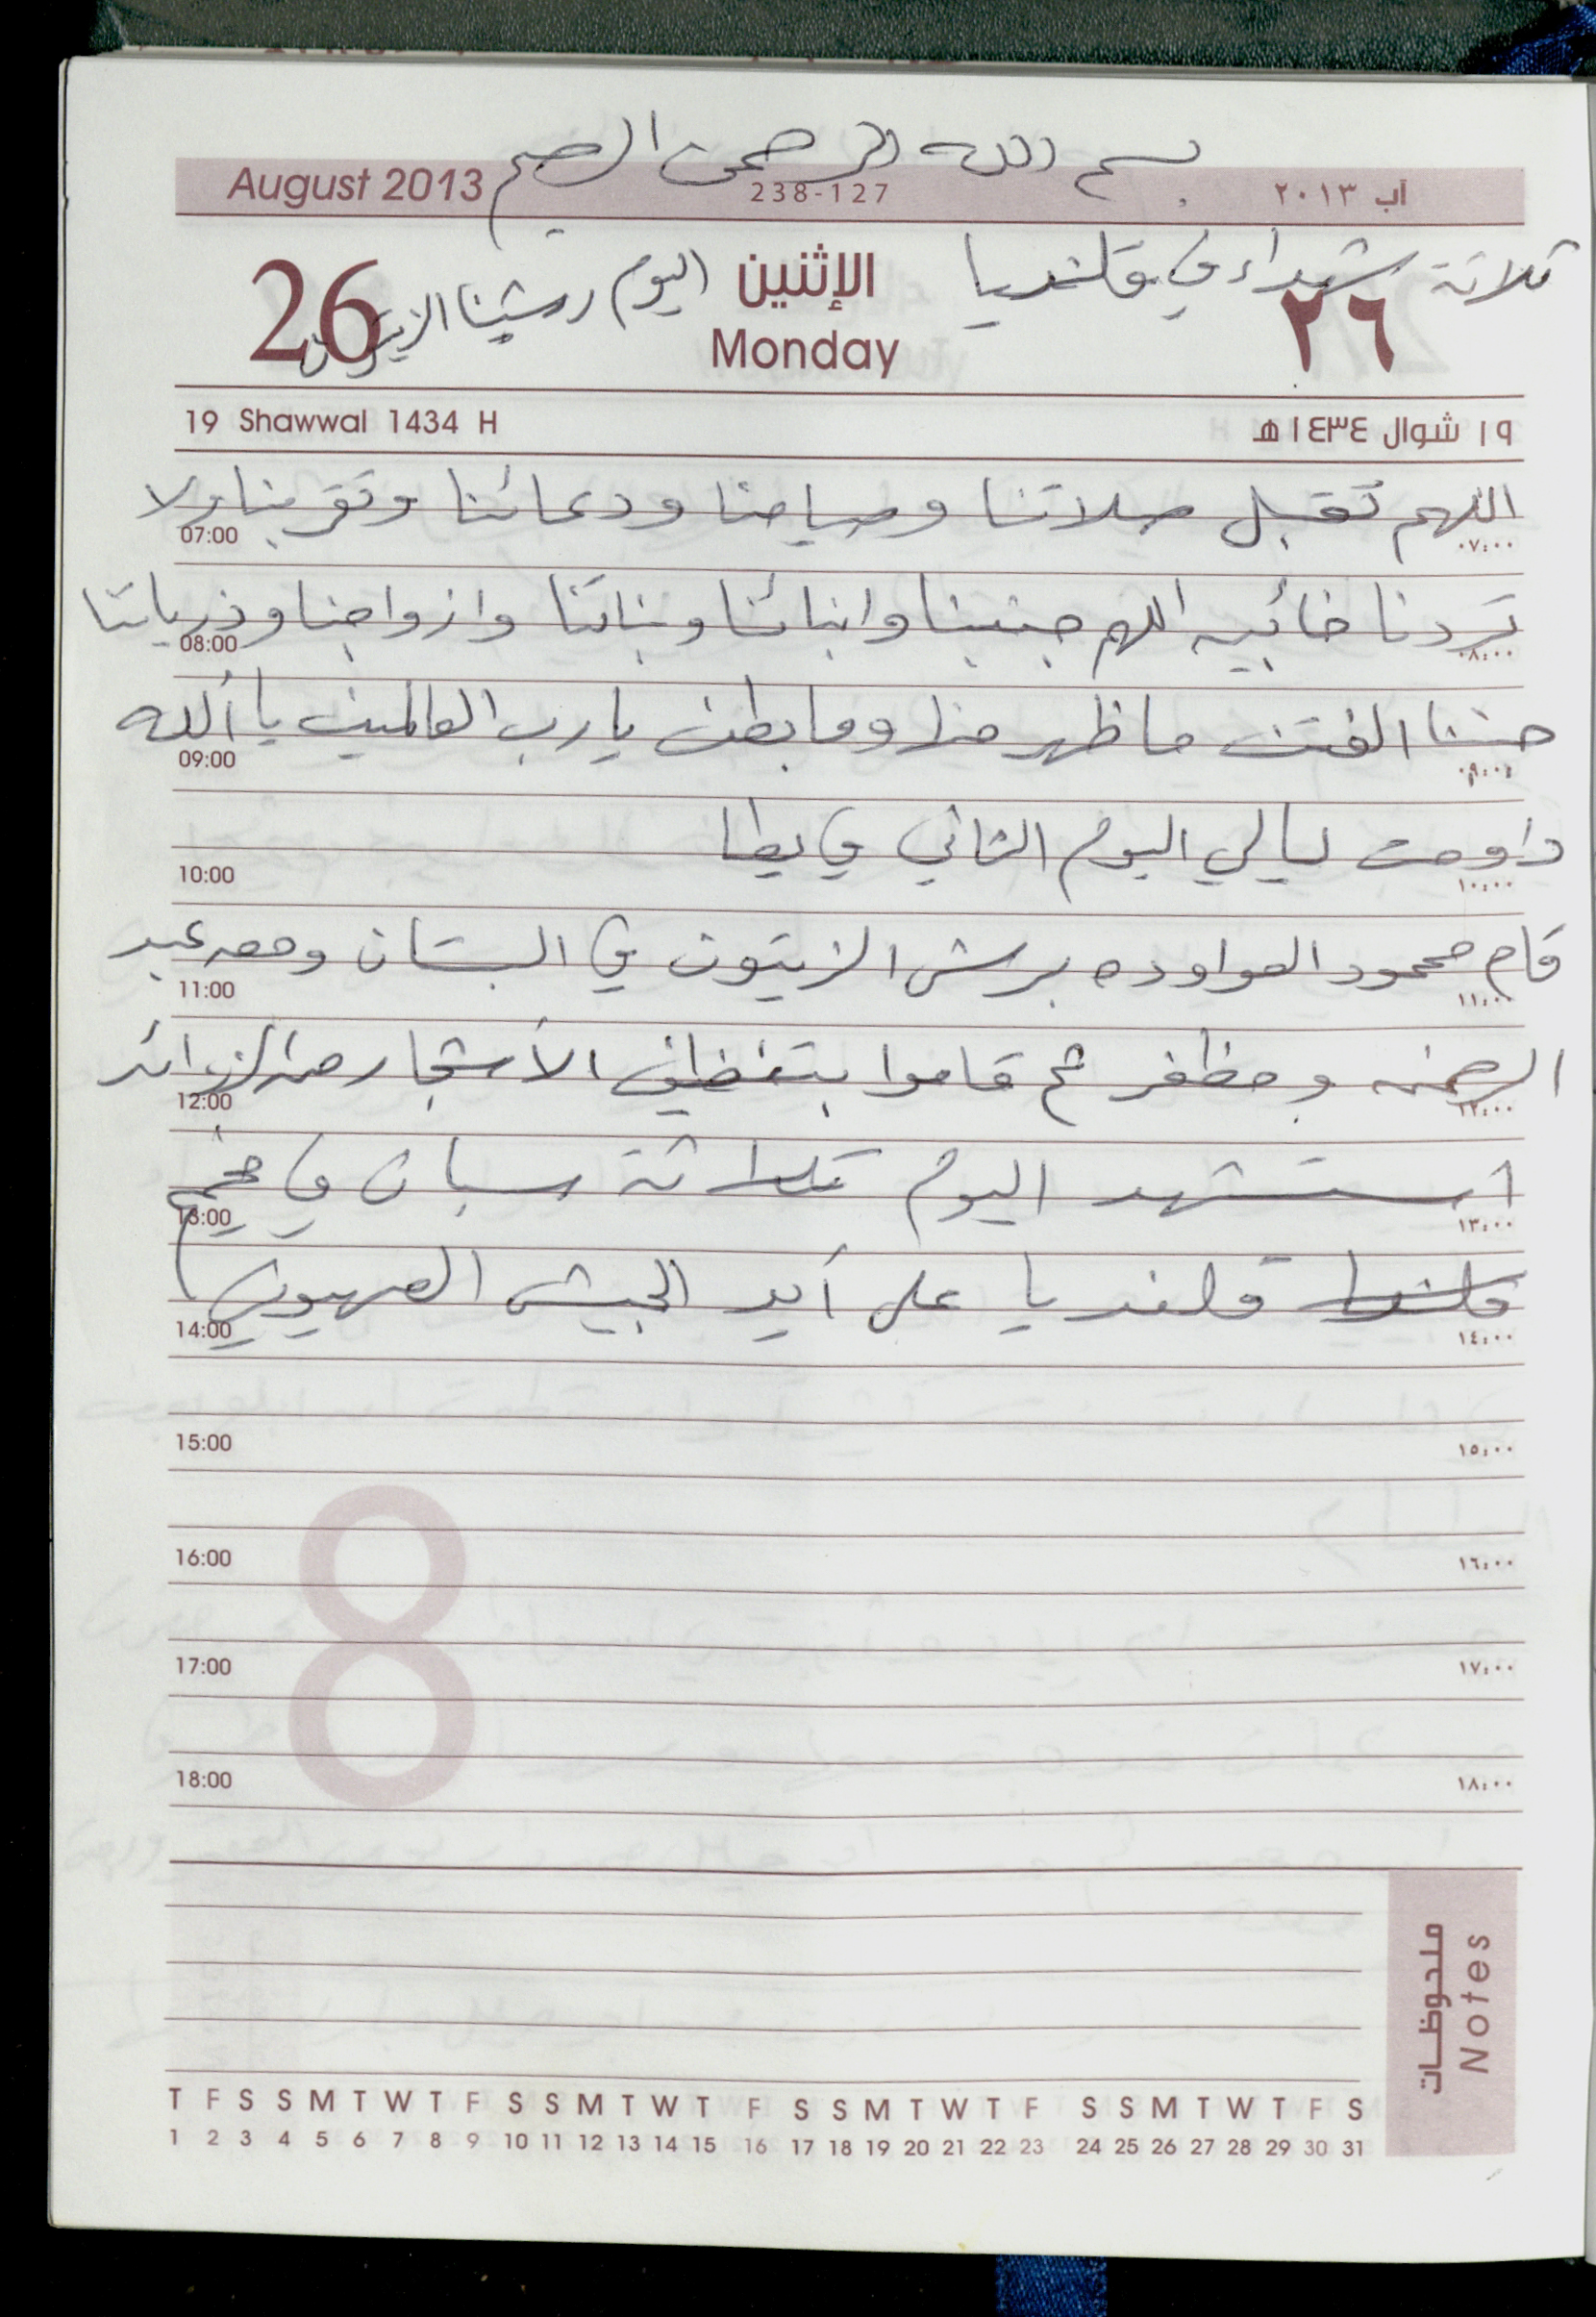 بسم الله الرحمن الرحيم
August 2013 238-127 آب ٢٠١٣
ثلاثة شهداء في قلنديا
اليوم رشينا الزيتون
26 الإثنين ٢٦
Monday
19 Shawwal 1434 H ١٩ شوال ١٤٣٤ هـ
اللهم تقبل صلاتنا وصيامنا ودعائنا وتقربنا ولا
07:00 ٠٧:٠٠
تردنا خائبين اللهم جنبنا وابنائنا وبناتنا وازواجنا وذرياتنا
08:00 ٠٨:٠٠
الفتن ما ظهر منها وما بطن يا رب العالمين يا ألله
09:00 ٠٩:٠٠
داومت ليالي اليوم الثاني في يطا
10:00 ١٠:٠٠
قام محمود العواوده برش الزيتون في البستان ومعه عبد
11:00 ١١:٠٠
الرحمن ومظفر ثم قاموا بتنظيف الأشجار من الزوائد
12:00 ١٢:٠٠
استشهد اليوم ثلاثة شبان في مخيم
13:00 ١٣:٠٠
قلنديا قلنديا على أيد الجيش الصهيوني
14:00 ١٤:٠٠
15:00 ١٥:٠٠
16:00 ١٦:٠٠
17:00 ١٧:٠٠
18:00 ١٨:٠٠
8
ملحوظات
Notes
T F S S M T W T F S S M T W T F S S M T W T F S S M T W T F S
1 2 3 4 5 6 7 8 9 10 11 12 13 14 15 16 17 18 19 20 21 22 23 24 25 26 27 28 29 30 31